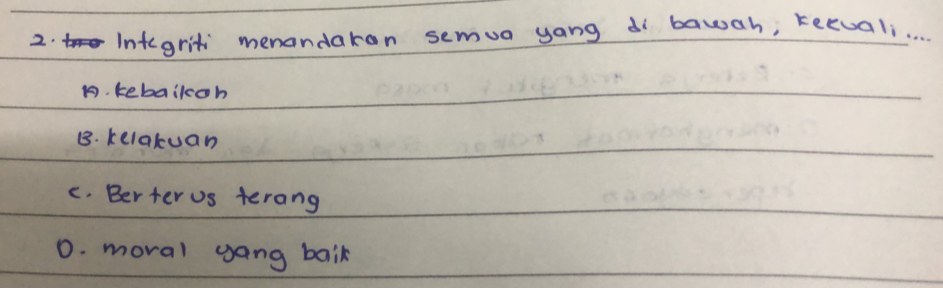 2. Integriti menandakan semua yang di bawah, kecuali....
A. kebaikan
B. kelakuan
C. Berterus terang
D. moral yang baik